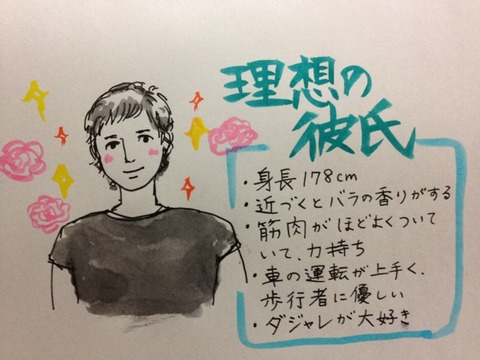 理想の
彼氏
・身長178cm
・近づくとバラの香りがする
・筋肉がほどよくついて
いて、力持ち
・車の運転が上手く、
歩行者に優しい
・ダジャレが大好き